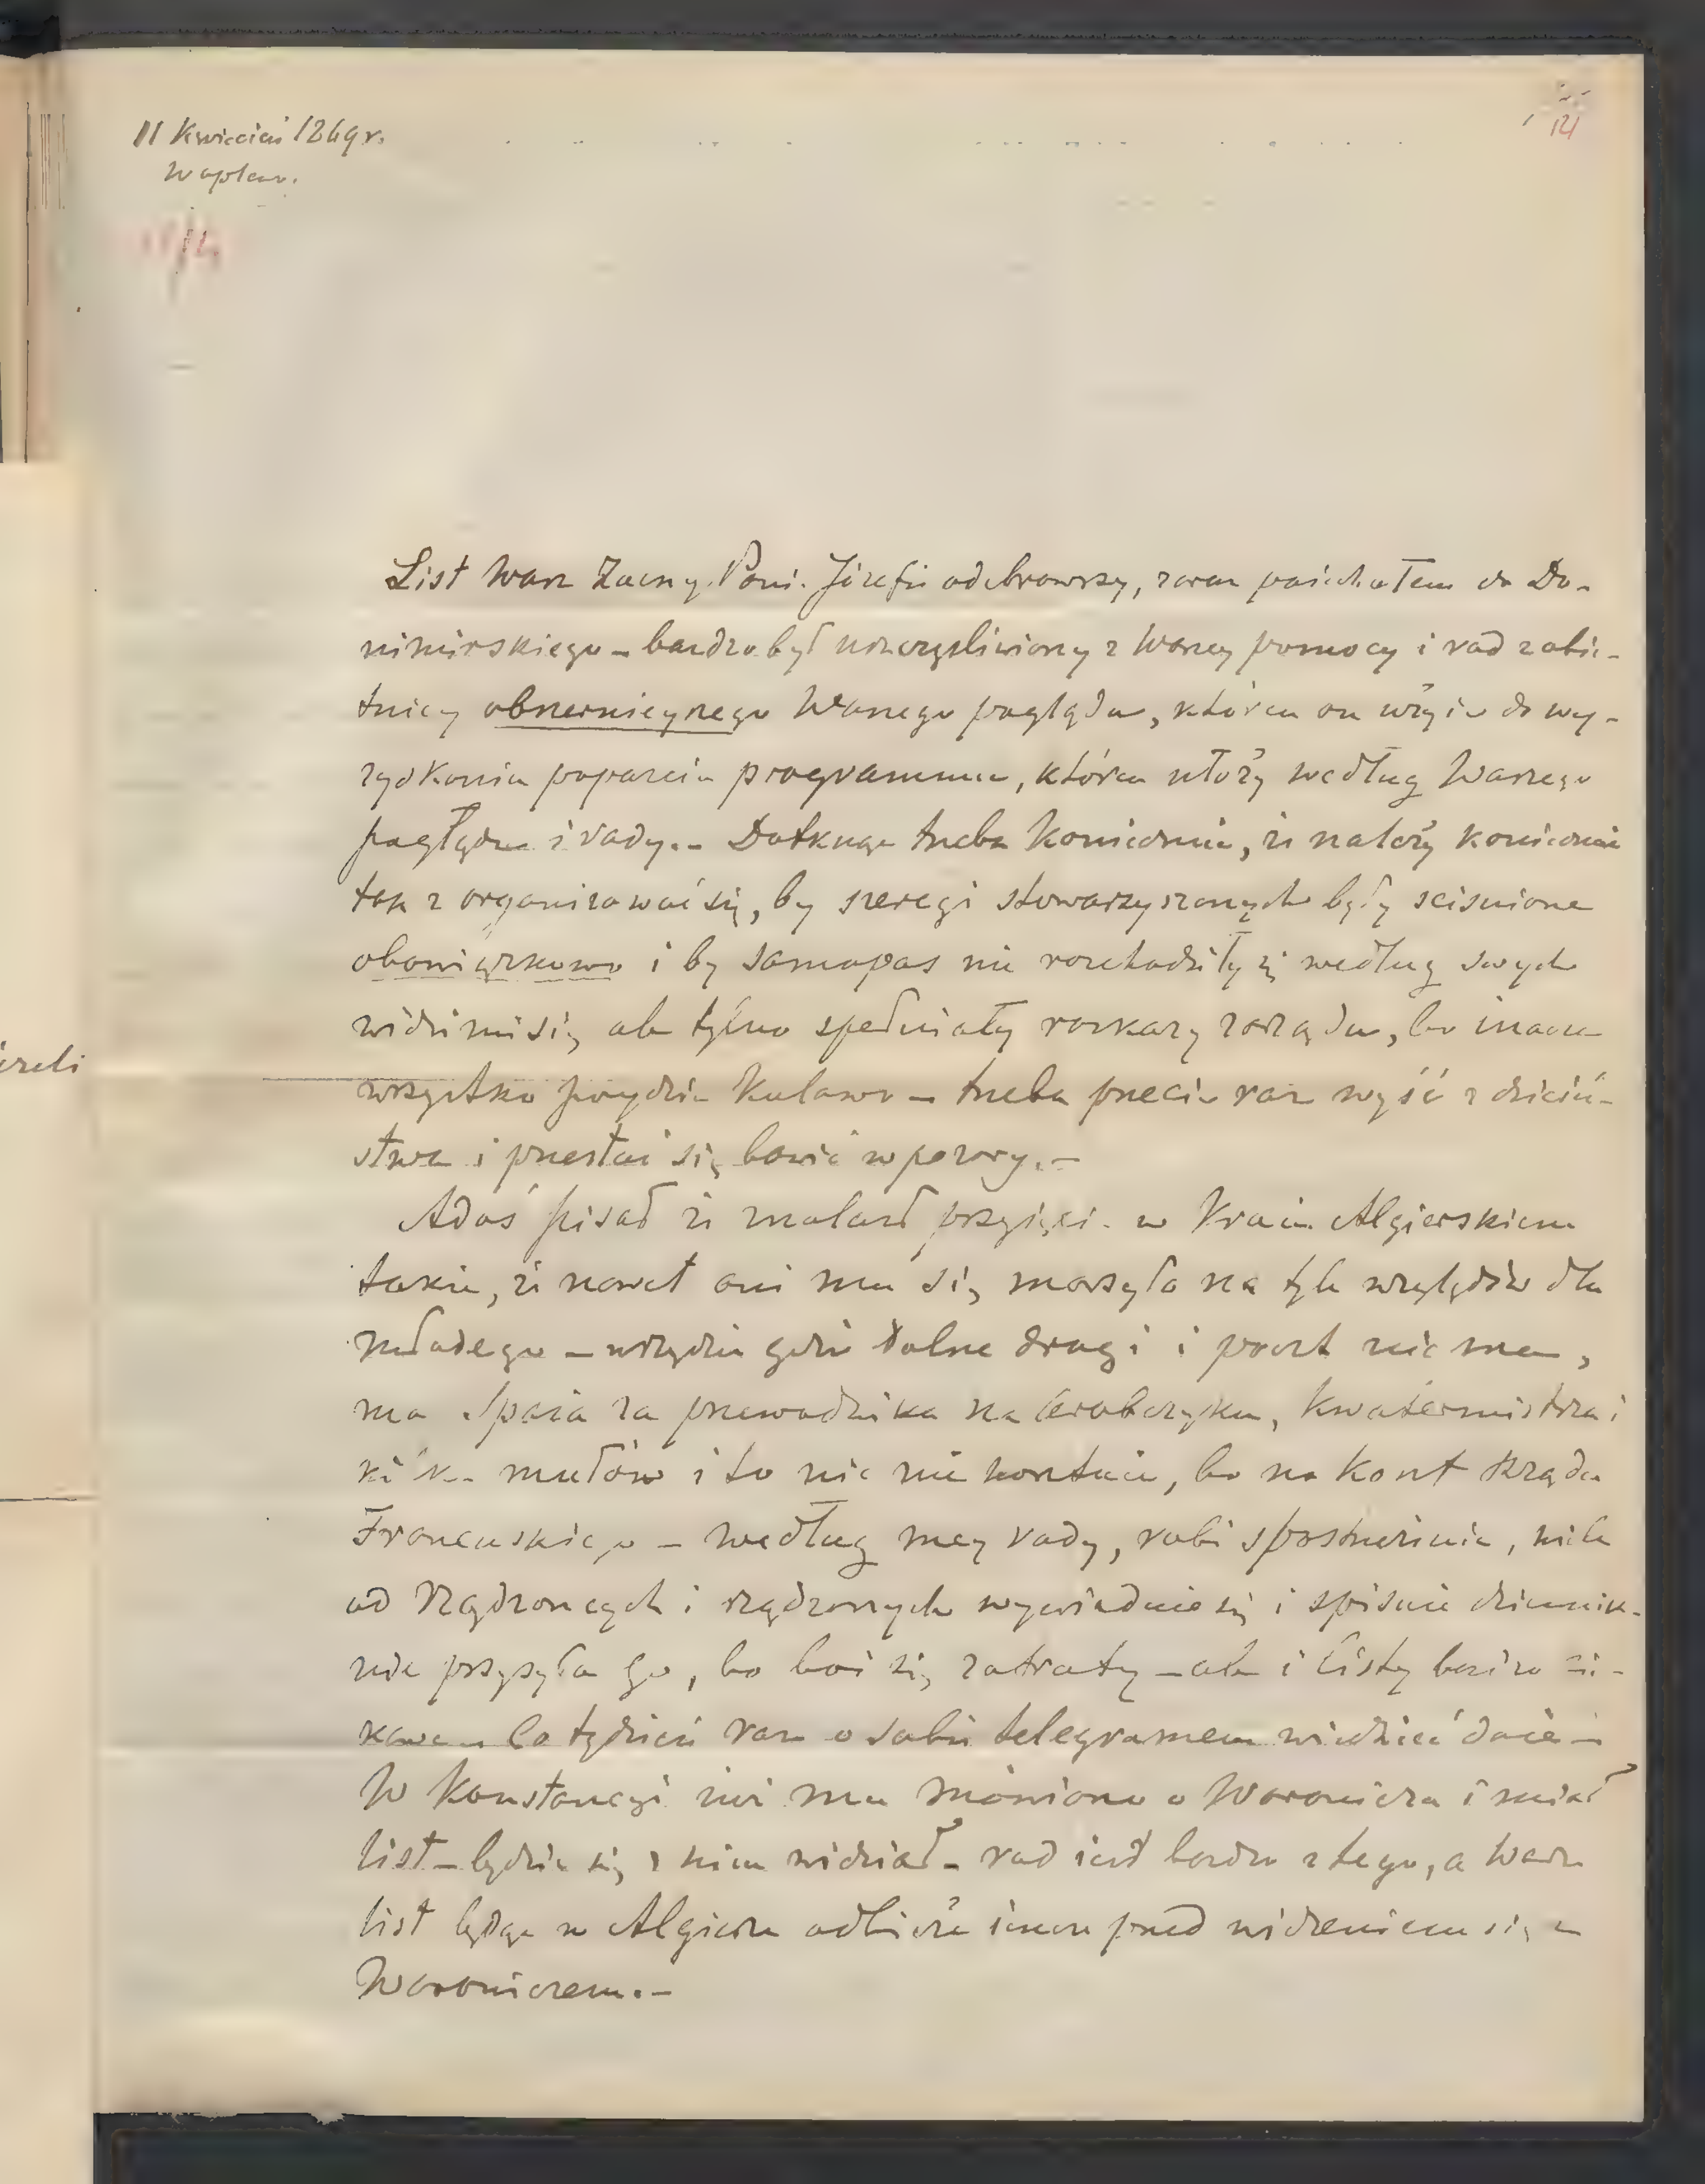 11 Kwiecień 1869 r.
Waplew.
121
List Wasz Zacny Panie Józefie odebrawszy, zaraz pojechałem do Do-
nimirskiego – bardzo był uszczęśliwiony z Waszej pomocy i rad z obie-
tnicy obszerniejszego Waszego poglądu, którem on użyje do wy-
zyskania poparcia programmu, którem ułoży według Waszego
poglądu i rady. – Dotknąć trzeba koniecznie, że należy koniecznie
tak zorganizować się, by szeregi stowarzyszonych były scisnione
obowiązkowo i by samopas nie rozchodziły się według swych
widzimisię, ale tylko spełniały rozkazy zarządu, bo inacze
wszystko pojdzie kulawo – trzeba przecie raz wyść z dzieciń-
stwa i przestać się bawić w pozory. –
Adaś pisał że znalazł przyjęcie w Kraju Algierskiem
takie, że nawet ani mu się marzyło na tyle względów dla
młodego – wszędzie gdzie dalne drogi i poczt nie ma,
ma Spaia za przewodnika na
kilka mułów i to nic nie kosztuie, bo na koszt Rządu
Francuskiego – według mej rady, robi spostrzeżenia, wiele
od Rządzoncych i rządzonych wywiaduie się i spisuie dziennik –
nie przysyła go, bo boi się zatraty – ale i listy bardzo cie-
kawe – Co tydzień raz o sobie telegramem wiedzieć daie –
W Konstancyi iuż mu mówiono o Woroniczu i miał
list – będzie się z nim widział – rad iest bardzo z tego, a Wasz
list będąc w Algierze odbierze ieszcze przed widzeniem się z
Woroniczem. –